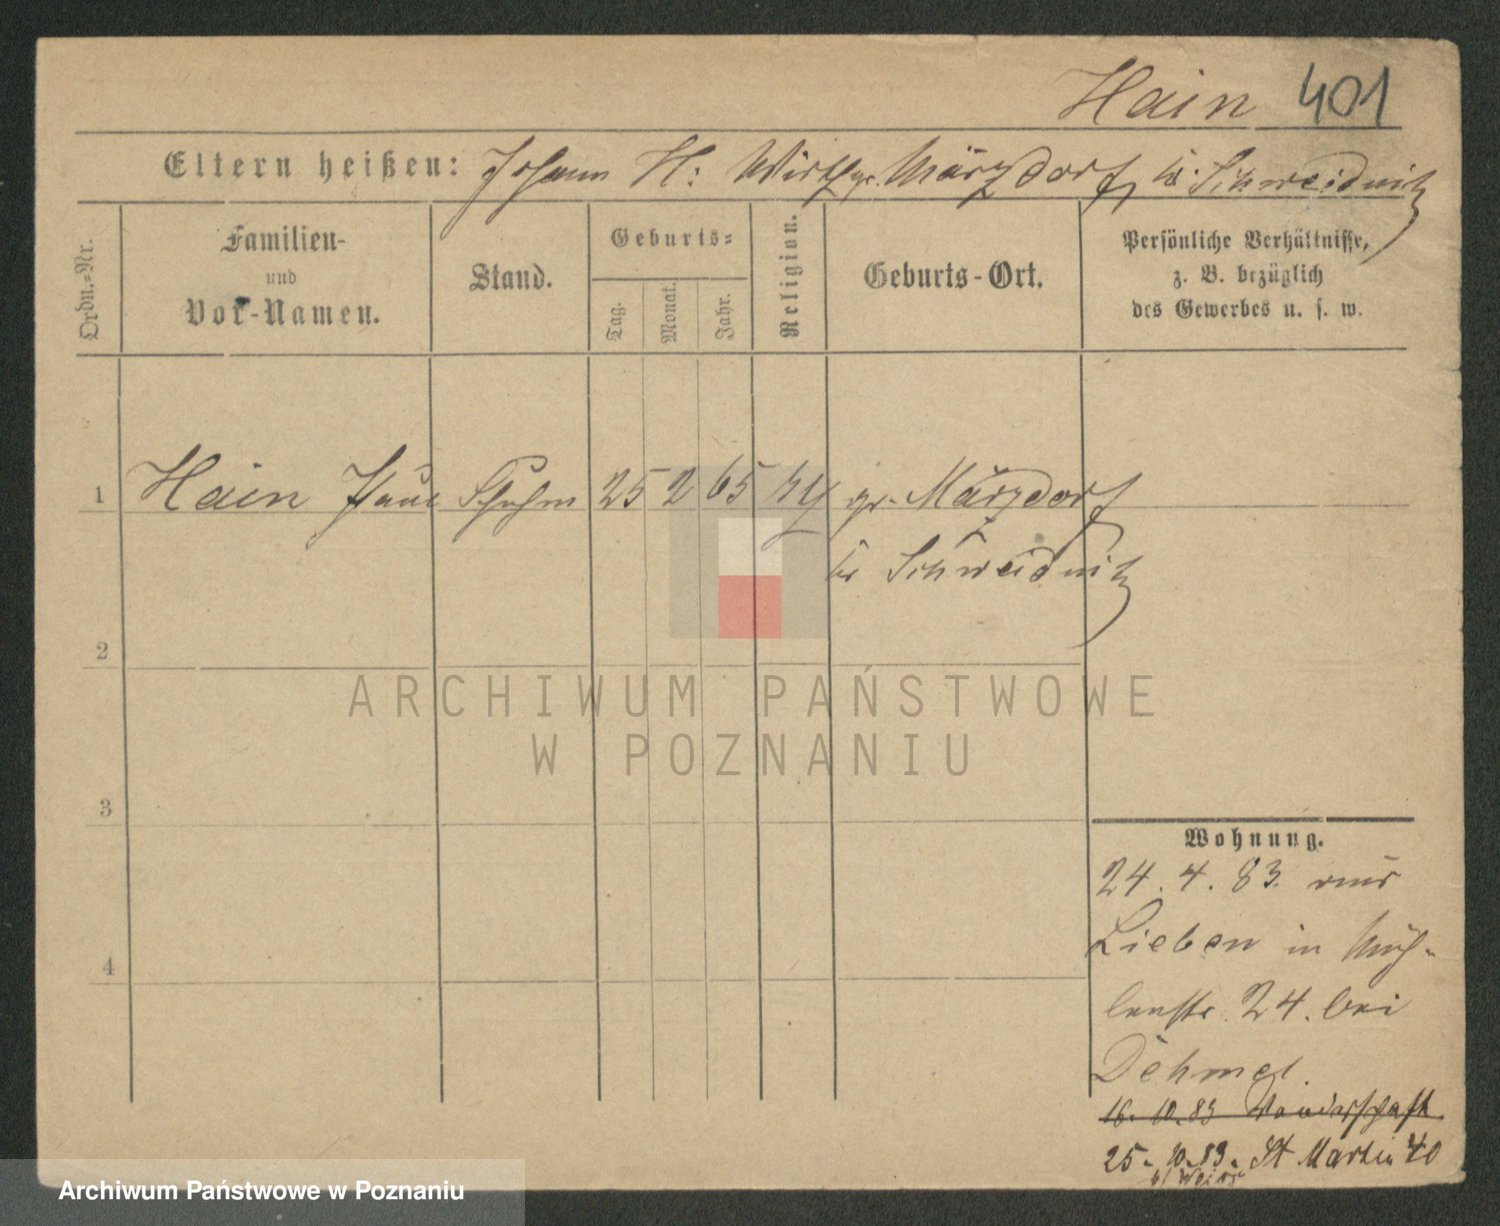 Hain 401
Eltern heißen: Johann H: Wirth gr. Märzdorf, b. Schweidnitz
Ordn.-Nr.
Familien-
und
Vor-Namen.
Stand.
Geburts-
Tag.
Monat.
Jahr.
Religion.
Geburts-Ort.
Persönliche Verhältnisse,
z. B. bezüglich
des Gewerbes u. s. w.
1 Hain Paul Schuhm 25 2 65 gr. Märzdorf
b. Schweidnitz
2
3
4
ARCHIWUM PAŃSTWOWE
W POZNANIU
Wohnung.
24. 4. 83. aus
Lieben in Müh-
lenstr. 24. bei
Dehmel.
16. 10. 83 Wanderschaft
25. 10. 83. St Martin 40
b/ Weiss
Archiwum Państwowe w Poznaniu